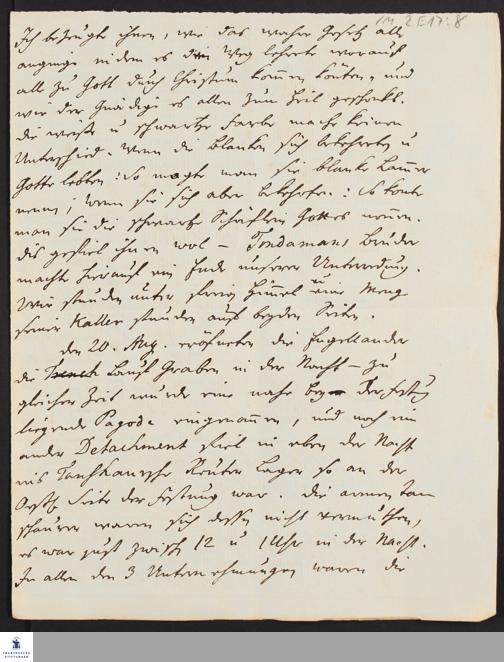 1M 2 E 17 : 8
Ich bezeugte ihnen, wie das wahre Gesetz alle
angienge indem es den Weg lehrete worauf
alle zu Gott durch Christum kommen könten, und
wie der Gnädige es allen zum Heil geschenkt.
die weiße u schwartze Farbe mache keinen
Unterschied. Wenn die Blanken sich bekehreten u
Gotte lebten: So mögte man sie blanke Lämmer
nennen; wenn sie sich aber bekehreten: So könte
man sie die schwartze Schäflein Gottes nennen.
dis gefiel ihnen wol — Tondamans Bruder
machte hierauf ein Ende unserer Unterredung.
Wir stunden unter freien Himmel u eine Meng
seiner Kaller stunden auf beyden Seiten.
den 20. Aug. eröfneten die Engelländer
die Lauf Graben in der Nacht — zu
gleicher Zeit wurde eine nahe bey der Festung
liegende Pagode eingenommen, und noch ein
ander Detachment fiel in eben der Nacht
ins Tanschaursche Reuter Lager so an der
Seite der Festung war. die armen Tan
schaurer waren sich dessen nicht vermuthen,
es war just zwisch 12 u 1 Uhr in der Nacht.
In allen den 3 Unternehmungen waren die
FRANCKESCHE
STIFTUNGEN